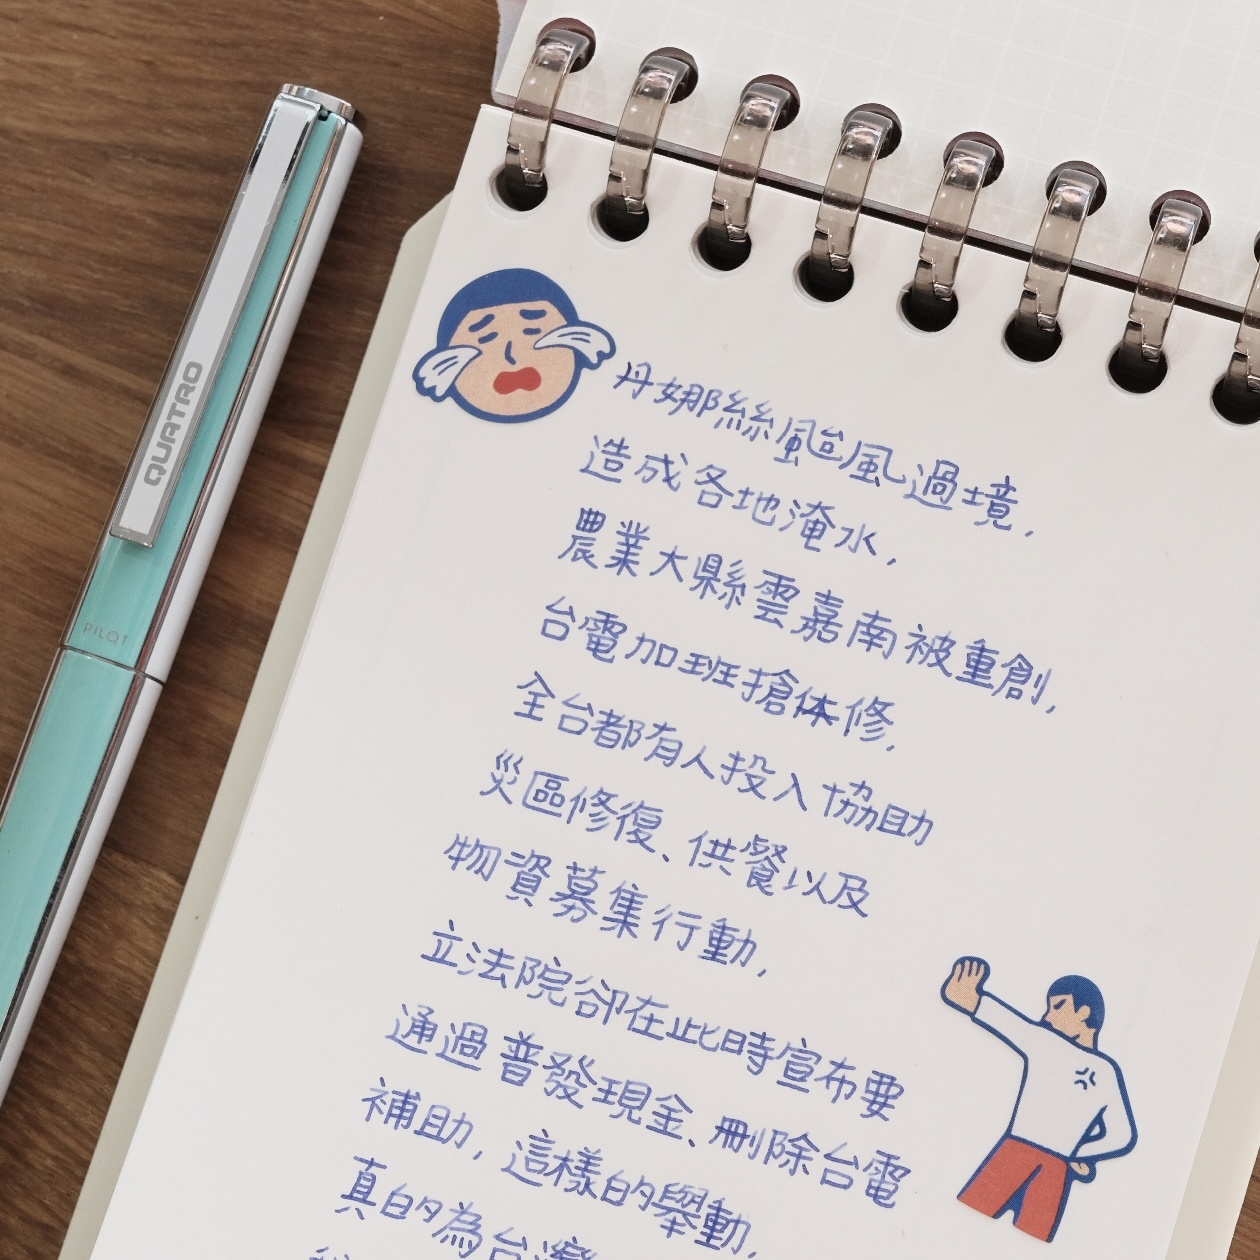 QUATRO
PILOT
丹娜絲颱風過境，
造成各地淹水，
農業大縣雲嘉南被重創，
台電加班搶修，
全台都有人投入協助
災區修復、供餐以及
物資募集行動，
立法院卻在此時宣布要
通過普發現金、刪除台電
補助，這樣的舉動，
真的為台灣